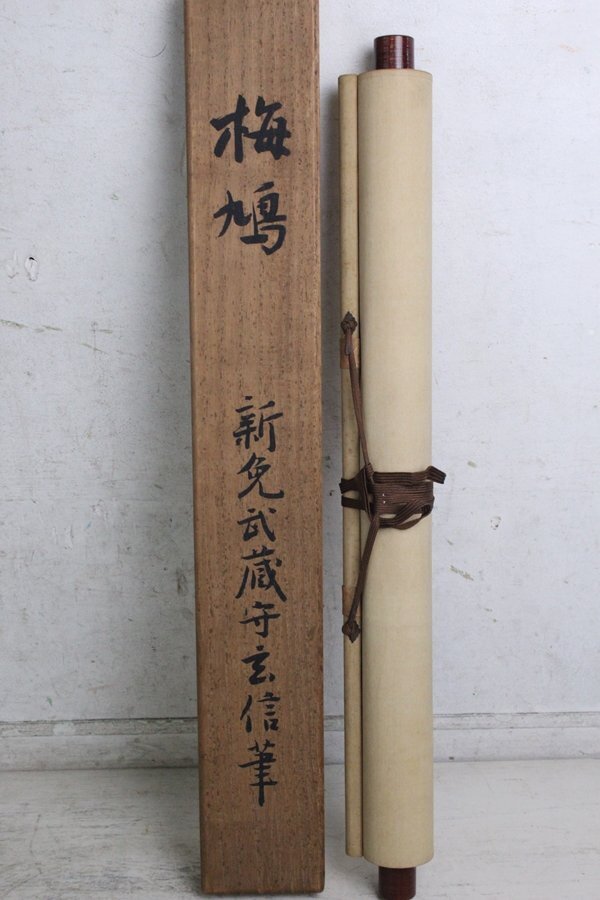 梅鳩
新免武蔵守玄信筆